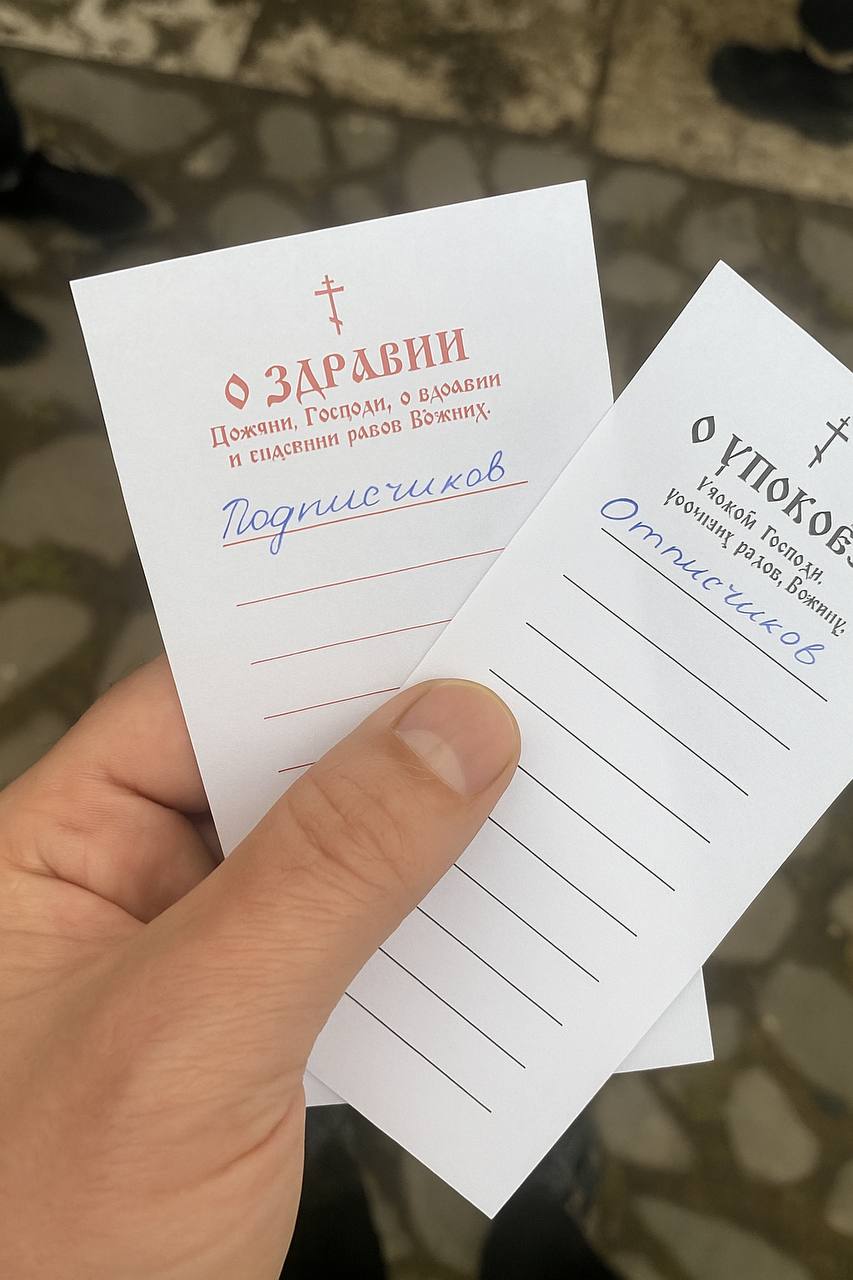 О ЗДРАВИИ
Дожяни, Господи, о вдоавии
и спасвнии равов Вожних.
Подписчиков
О УПОКОЄ
Господи,
равов, Вожину,
Отписчиков